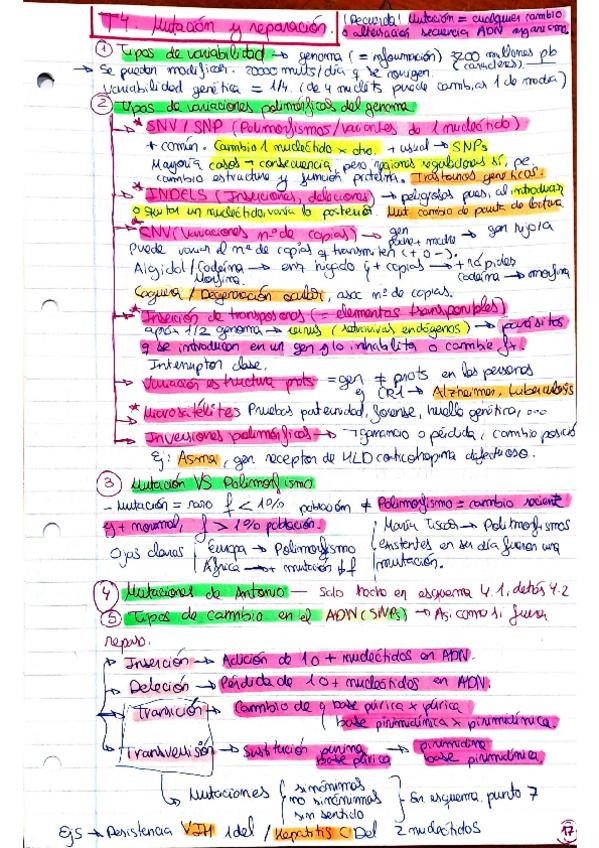 T4. Mutación y reparación. (Recuerda! Mutación = cualquier cambio
o alteración secuencia ADN organismo.
① Tipos de variabilidad → genoma (= información) 3200 millones pb
(caracteres).
→ Se pueden modificar. 20000 muts/día q se corrigen.
Variabilidad genética = 1/4. (de 4 nucleóts puede cambiar 1 de media)
② Tipos de variaciones polimórficas del genoma
* SNV / SNP (Polimorfismos/variantes de 1 nucleótido)
+ común. Cambio 1 nucleótido x otro. + usual → SNPs
Mayoría casos → consecuencia, pero regiones reguladoras sí, pe.
cambio estructura y función proteína. Trastornos genéticos.
* INDELS (Inserciones, deleciones) → peligrosos pues, al introducir
o quitar un nucleótido varía lo posterior. Mut cambio de pauta de lectura
* CNV (Variaciones nº de copias) → gen padre + madre → gen hijo/a
Puede variar el nº de copias q transmiten (+ o -).
Algidol / Codeína → enz hígado q + copias → + rápides
Morfina. codeína → morfina
Ceguera / Degeneración ocular, asoc nº de copias.
* Inserción de transposones (= elementos transponibles)
aprox 1/2 genoma → virus (retrovirus endógenos) → parásitos
q se introducen en un gen y lo inhabilita o cambie fx.
Interruptor clase.
→ Variación estructura prots = gen ≠ prots en las personas
ej CR1 → Alzheimer, tuberculosis
* Microsatélites Pruebas paternidad, forense, huella genética, ...
→ Inversiones polimórficas → ganancia o pérdida, cambio posició
Ej: Asma, gen receptor de HLD corticotropina defectuoso.
③ Mutación VS Polimorfismo
- Mutación = raro f < 1% población ≠ Polimorfismo = cambio reciente
y + normal, f > 1% población.
Ojos claros { Europa → Polimorfismo
África → + mutación
{ María Tiscar → Polimorfismos
existentes en su día fueron una
mutación.
④ Mutaciones de Antonio — Solo hecho en esquema 4.1, detrás 4.2
⑤ Tipos de cambio en el ADN (SNPs) → Así como 1, fuera
repaso.
→ Inserción → Adición de 1 o + nucleótidos en ADN.
→ Deleción → Pérdida de 1 o + nucleótidos en ADN.
→ Transición → Cambio de q base púrica x púrica
base pirimidínica x pirimidínica.
→ Transversión → Sustitución purina → pirimidina
base púrica base pirimidínica.
↳ Mutaciones { sinónimas
no sinónimas
sin sentido } En esquema, punto 7
Ejs → Resistencia VIH 1del / Hepatitis C Del 2 nucleótidos
17